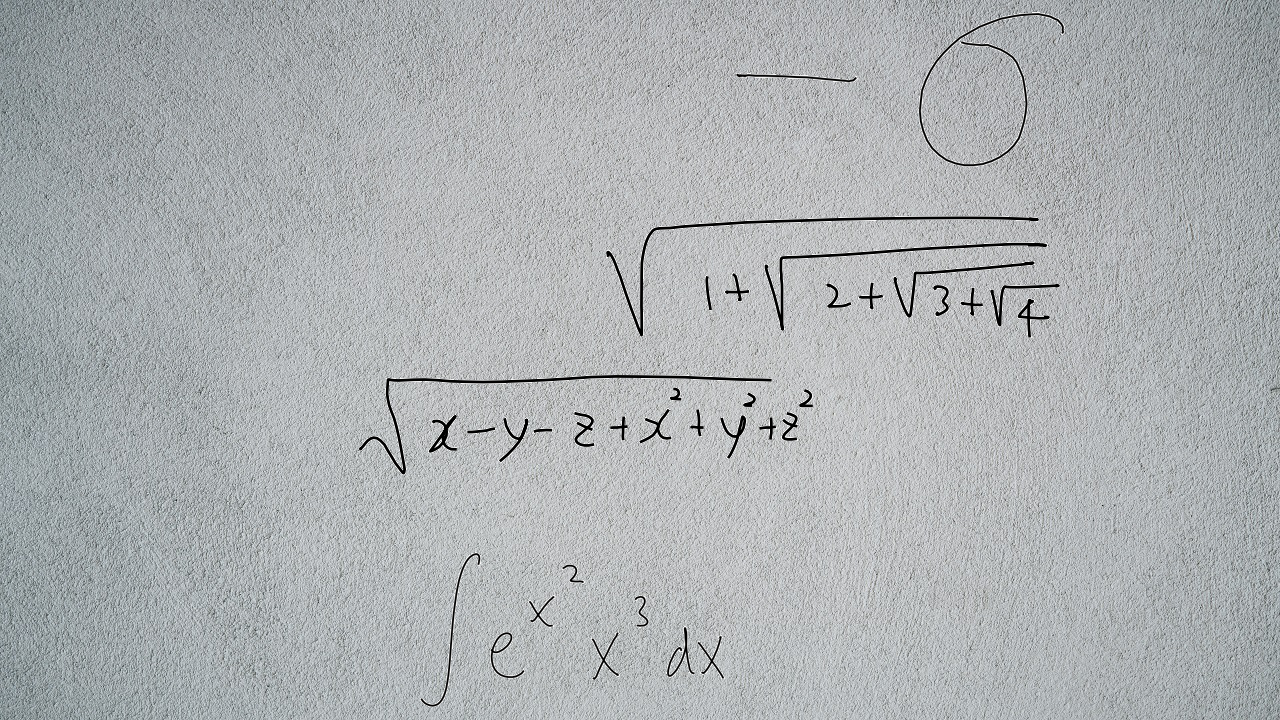 -σ
\sqrt{1+\sqrt{2+\sqrt{3+\sqrt{4}}}}
\sqrt{x-y-z+x^2+y^2+z^2}
\int e^{x^2} x^3 dx